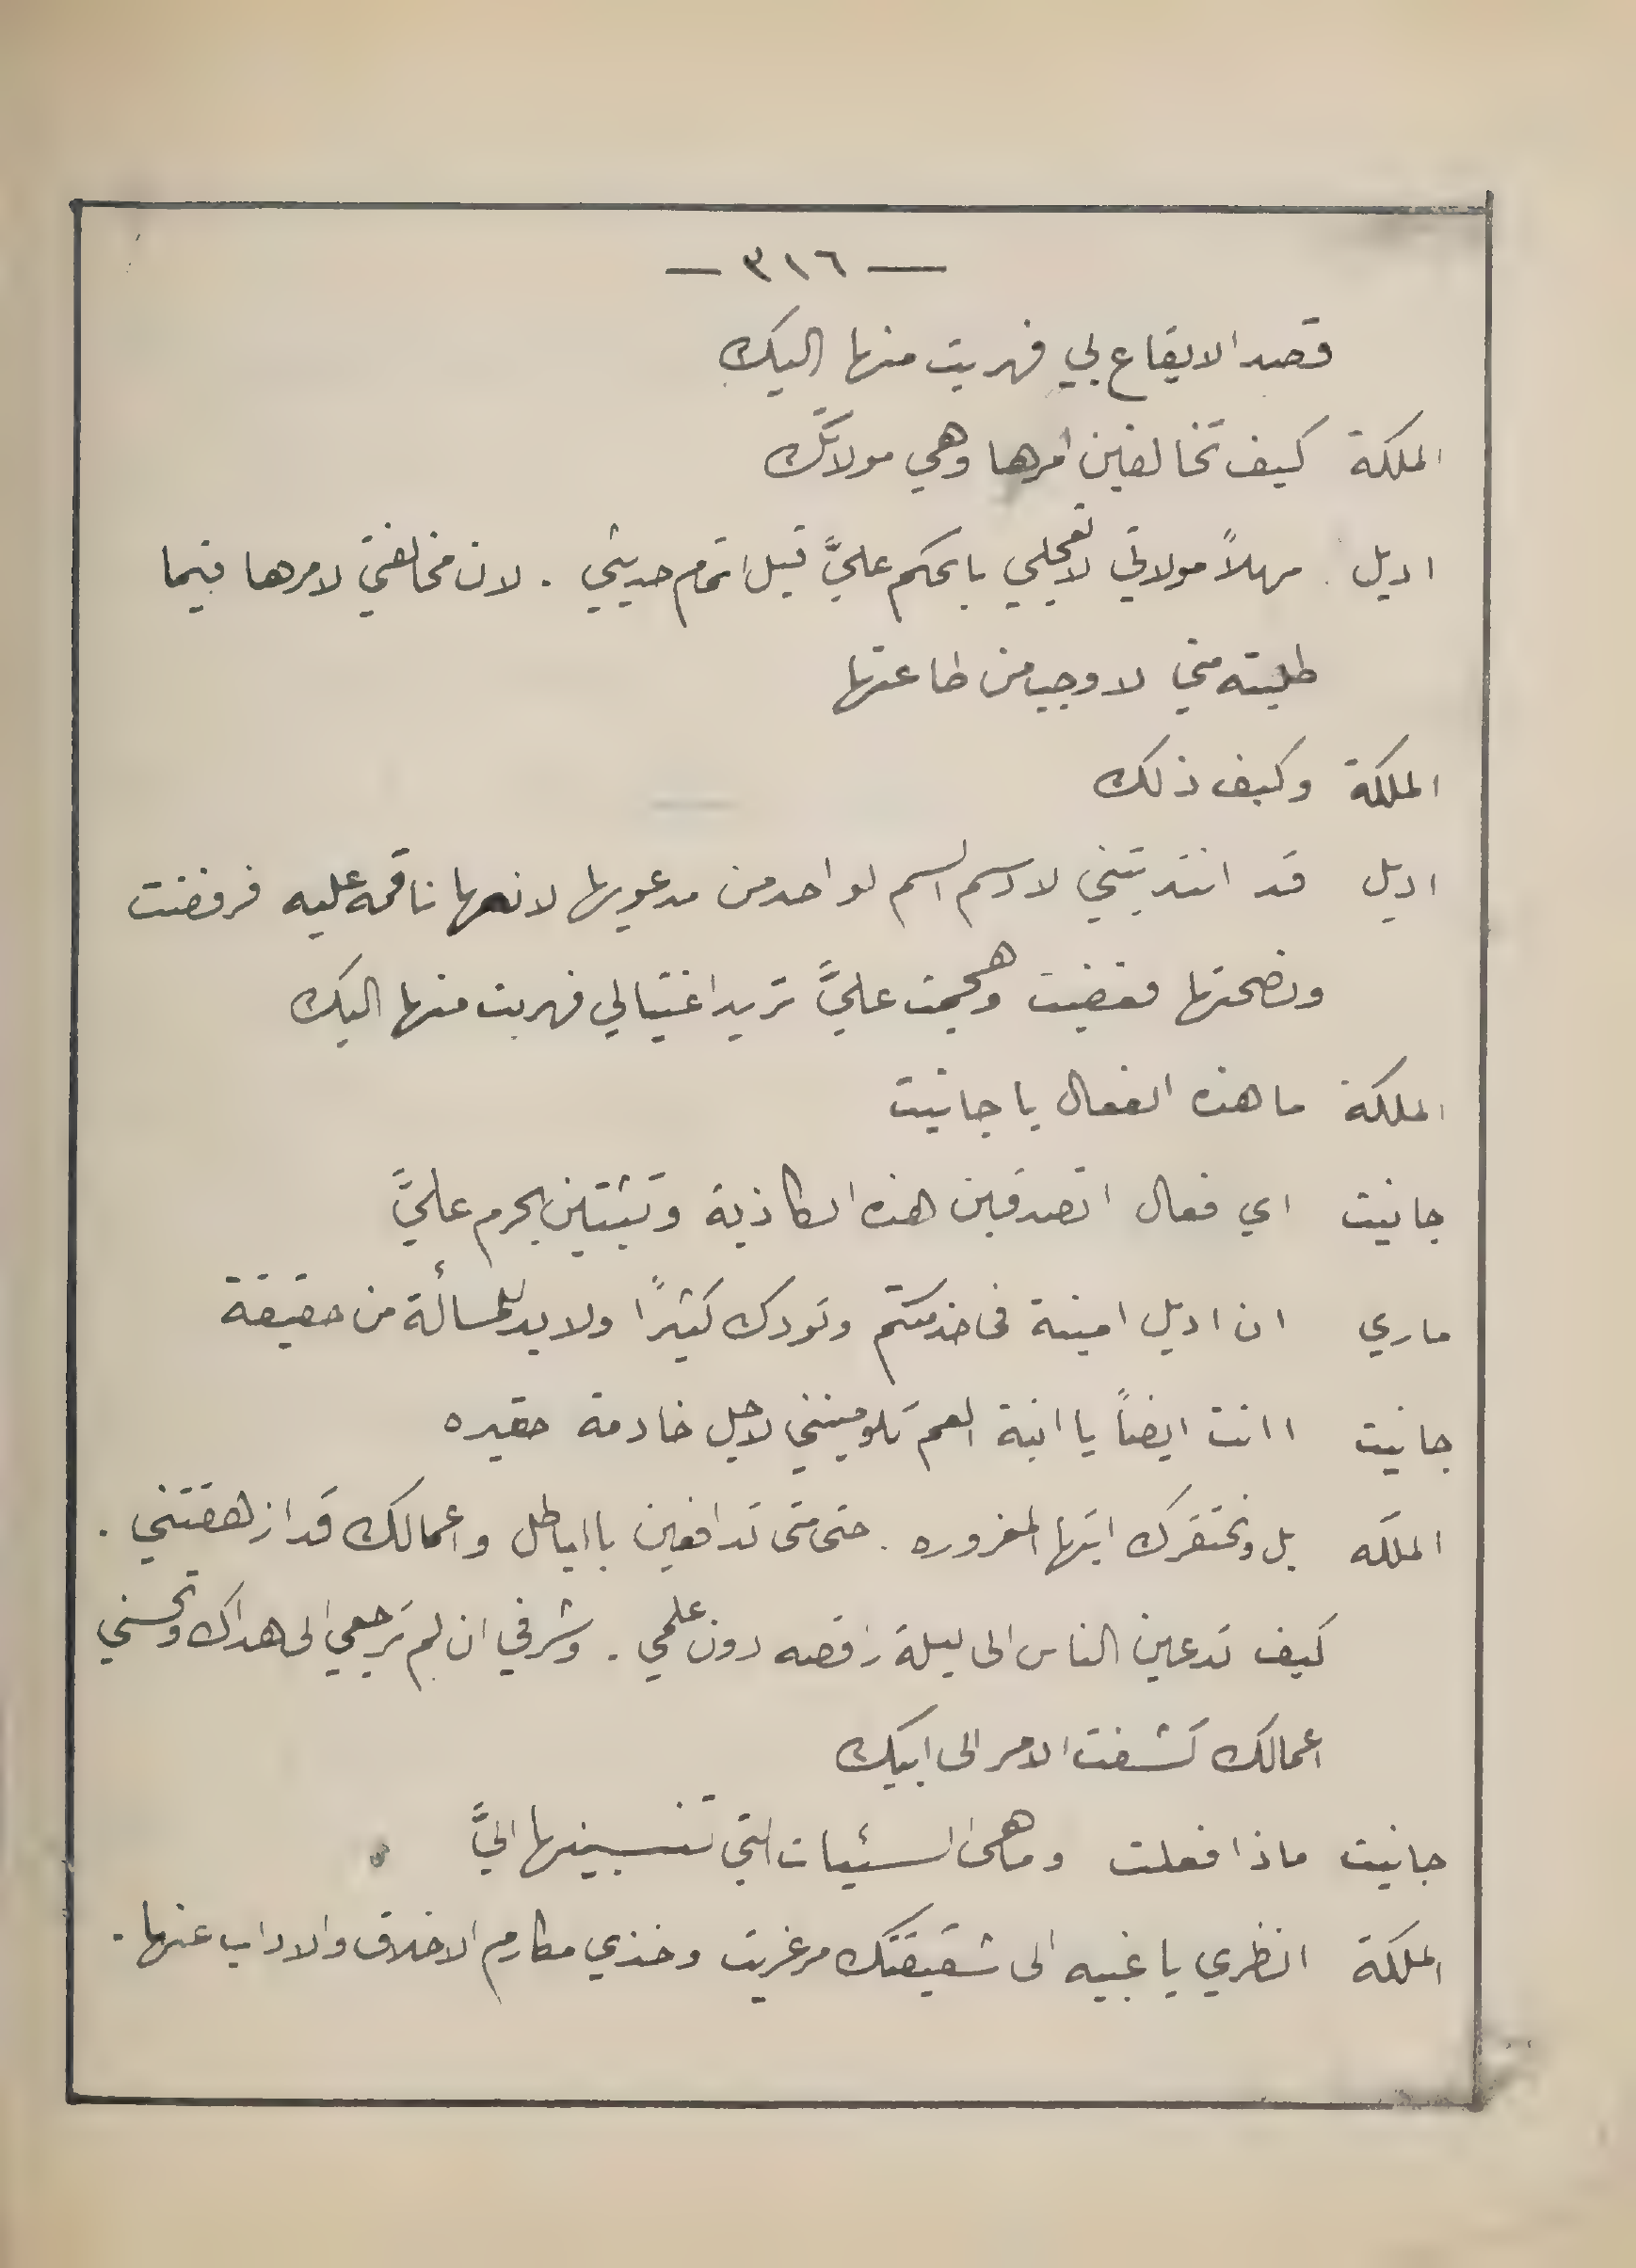 — ٣١٦ —
قصد الايقاع بي فهربت منها اليك
الملكة كيف تخالفين امرها وهي مولاتك
اديل مهلاً مولاتي لا تعجلي بالحكم عليَّ قبل اتمام حديثي . لان مخالفتي لامرها فيما
طلبته مني لاوجب من طاعتها
الملكة وكيف ذلك
اديل قد انتدبتني لادسم السم لواحد من مدعويها لانها ناقمه عليه فرفضت
ونصحتها فغضبت وهجمت عليَّ تريد اغتيالي فهربت منها اليك
الملكة ما هذه الفعال يا جانيت
جانيت اي فعال اتصدقين هذه الكاذبة وتثبتين الجرم عليَّ
ماري ان اديل امينة في خدمتكم وتودك كثيرًا ولابد للمسألة من حقيقة
جانيت اانت ايضاً يا ابنة العم تلومينني لاجل خادمة حقيره
الملكه بل ونحتقرك ايتها المغروره . حتى متى تدافعين بااباطل واعمالك قد ازهقتني .
كيف تدعين الناس الى ليلة راقصه دون علمي . وشرفي ان لم ترجعي الى هداك وتحسني
اعمالك كشفت الامر الى ابيك
جانيت ماذا فعلت وما هى السئيات التي تنسبينها اليَّ
الملكة انظري يا غبيه الى شقيقتك مرغريت وخذي مكارم الاخلاق والاداب عنها .